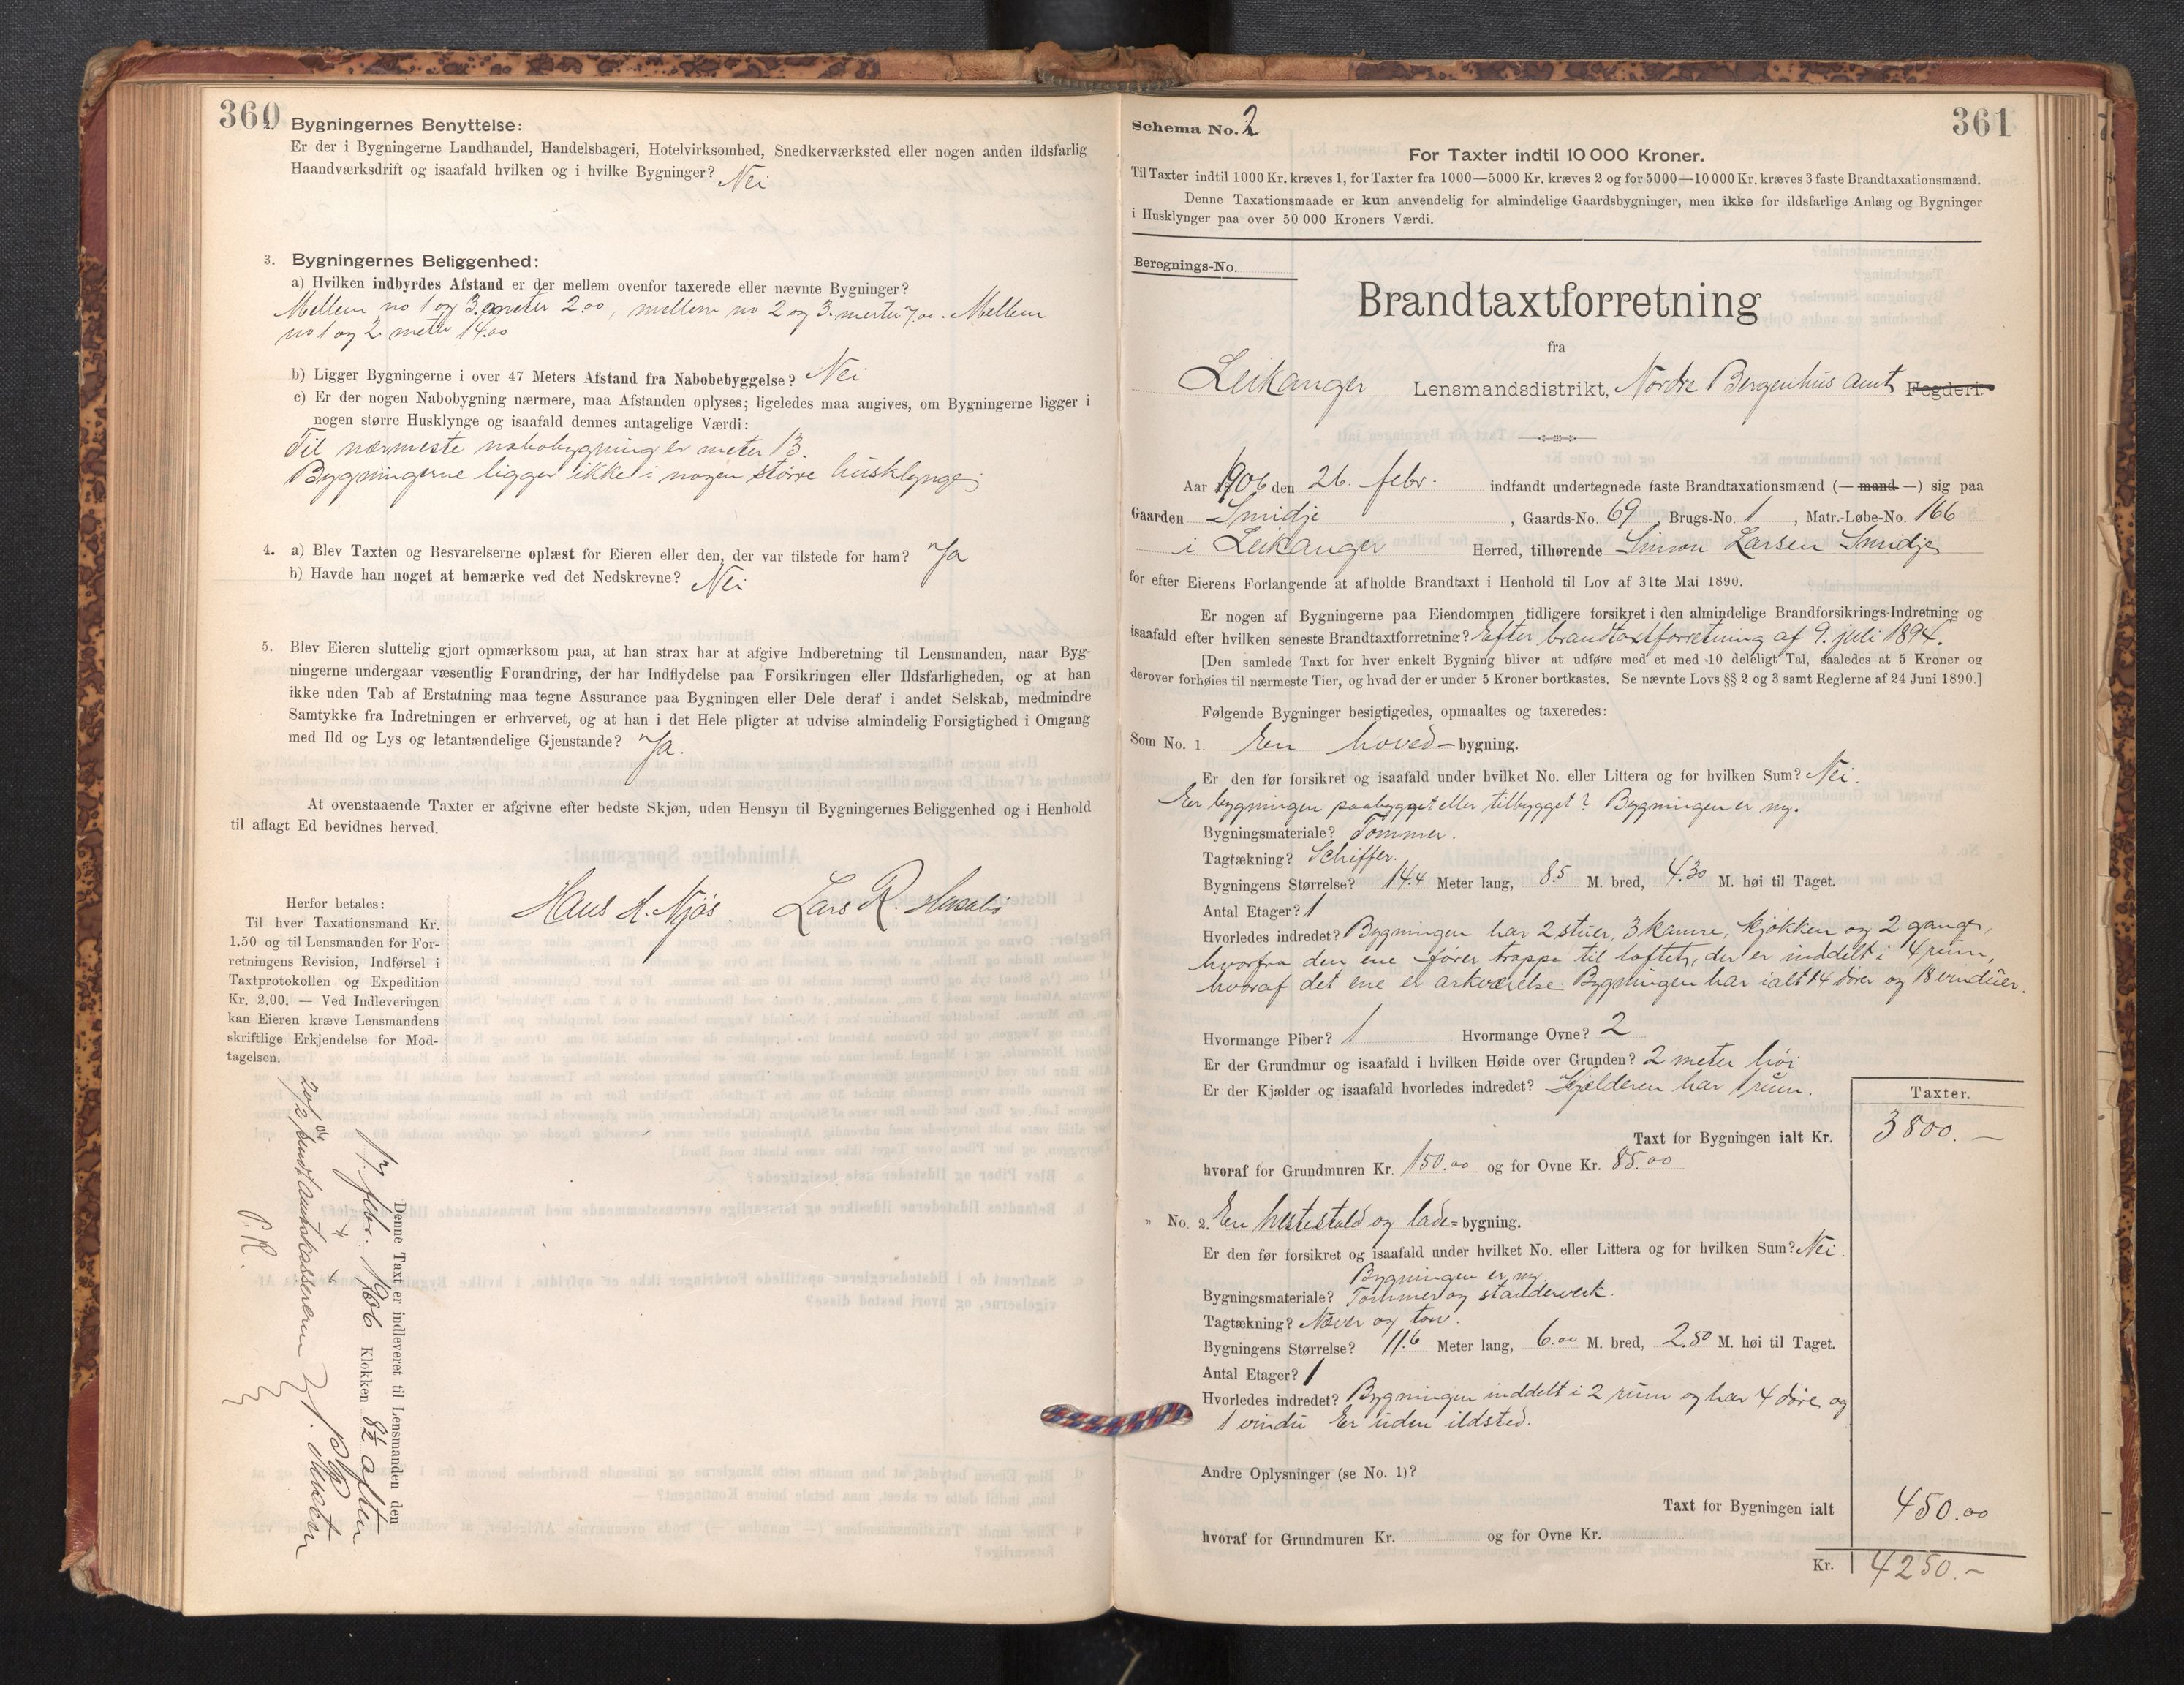 360
2. Bygningernes Benyttelse:
Er der i Bygningerne Landhandel, Handelsbageri, Hotelvirksomhed, Snedkerværksted eller nogen anden ildsfarlig
Haandværksdrift og isaafald hvilken og i hvilke Bygninger? Nei
3. Bygningernes Beliggenhed:
a) Hvilken indbyrdes Afstand er der mellem ovenfor taxerede eller nævnte Bygninger?
Mellem no 1 og 3. meter 2.00, mellem no 2 og 3. meter 7.00. Mellem
no 1 og 2 meter 14.00
b) Ligger Bygningerne i over 47 Meters Afstand fra Nabobebyggelse? Nei
c) Er der nogen Nabobygning nærmere, maa Afstanden oplyses; ligeledes maa angives, om Bygningerne ligger i
nogen større Husklynge og isaafald dennes antagelige Værdi:
Til nærmeste nabobygning er meter 13.
Bygningerne ligger ikke i nogen større husklynge
4. a) Blev Taxten og Besvarelserne oplæst for Eieren eller den, der var tilstede for ham? Ja
b) Havde han noget at bemærke ved det Nedskrevne? Nei
5. Blev Eieren sluttelig gjort opmærksom paa, at han strax har at afgive Indberetning til Lensmanden, naar Byg-
ningerne undergaar væsentlig Forandring, der har Indflydelse paa Forsikringen eller Ildsfarligheden, og at han
ikke uden Tab af Erstatning maa tegne Assurance paa Bygningen eller Dele deraf i andet Selskab, medmindre
Samtykke fra Indretningen er erhvervet, og at han i det Hele pligter at udvise almindelig Forsigtighed i Omgang
med Ild og Lys og letantændelige Gjenstande? Ja.
At ovenstaaende Taxter er afgivne efter bedste Skjøn, uden Hensyn til Bygningernes Beliggenhed og i Henhold
til aflagt Ed bevidnes herved.
Hans H. Njøs. Lars R.
Herfor betales:
Til hver Taxationsmand Kr.
1.50 og til Lensmanden for For-
retningens Revision, Indførsel i
Taxtprotokollen og Expedition
Kr. 2.00. — Ved Indleveringen
kan Eieren kræve Lensmandens
skriftlige Erkjendelse for Mod-
tagelsen.
Denne Taxt er indleveret til Lensmanden den
febr. 1906 Klokken 8½ aften
sendt amtskassereren
P. R.
Schema No. 2
361
For Taxter indtil 10 000 Kroner.
Til Taxter indtil 1000 Kr. kræves 1, for Taxter fra 1000—5000 Kr. kræves 2 og for 5000—10 000 Kr. kræves 3 faste Brandtaxationsmænd.
Denne Taxationsmaade er kun anvendelig for almindelige Gaardsbygninger, men ikke for ildsfarlige Anlæg og Bygninger
i Husklynger paa over 50 000 Kroners Værdi.
Beregnings-No.
Brandtaxtforretning
fra
Leikanger Lensmandsdistrikt, Nordre Bergenhus amt Fogderi
Aar 1906 den 26. febr. indfandt undertegnede faste Brandtaxationsmænd (— mand —) sig paa
Gaarden Smidje, Gaards-No. 69, Brugs-No. 1, Matr.-Løbe-No. 166
i Leikanger Herred, tilhørende Simon Larsen Smidje
for efter Eierens Forlangende at afholde Brandtaxt i Henhold til Lov af 31te Mai 1890.
Er nogen af Bygningerne paa Eiendommen tidligere forsikret i den almindelige Brandforsikrings-Indretning og
isaafald efter hvilken seneste Brandtaxtforretning? Efter brandtaxtforretning af 9. juli 1894.
[Den samlede Taxt for hver enkelt Bygning bliver at udføre med et med 10 deleligt Tal, saaledes at 5 Kroner og
derover forhøies til nærmeste Tier, og hvad der er under 5 Kroner bortkastes. Se nævnte Lovs §§ 2 og 3 samt Reglerne af 24 Juni 1890.]
Følgende Bygninger besigtigedes, opmaaltes og taxeredes:
Som No. 1. En hoved-bygning.
Er den før forsikret og isaafald under hvilket No. eller Littera og for hvilken Sum? Nei.
Er bygningen paabygget eller tilbygget? Bygningen er ny.
Bygningsmateriale? Tømmer.
Tagtækning? Schiffer.
Bygningens Størrelse? 14.4 Meter lang, 8.5 M. bred, 4.30 M. høi til Taget.
Antal Etager? 1
Hvorledes indredet? Bygningen har 2 stuer, 3 kamre, kjøkken og 2 gange,
hvorfra den ene fører trappe til loftet, der er inddelt i 4 rum,
hvoraf det ene er arkværelse. Bygningen har ialt 14 døre og 18 vinduer.
Hvormange Piber? 1 Hvormange Ovne? 2
Er der Grundmur og isaafald i hvilken Høide over Grunden? 2 meter høi
Er der Kjælder og isaafald hvorledes indredet? Kjelderen har 1 rum.
Taxter.
Taxt for Bygningen ialt Kr. 3800.—
hvoraf for Grundmuren Kr. 150.00 og for Ovne Kr. 85.00
" No. 2. En hestestald og lade-bygning.
Er den før forsikret og isaafald under hvilket No. eller Littera og for hvilken Sum? Nei.
Bygningen er ny.
Bygningsmateriale? Tømmer og standerverk.
Tagtækning? Næver og torv.
Bygningens Størrelse? 11.6 Meter lang, 6.00 M. bred, 2.80 M. høi til Taget.
Antal Etager? 1
Hvorledes indredet? Bygningen inddelt i 2 rum og har 4 døre og
1 vindu Er uden ildsted.
Andre Oplysninger (se No. 1)?
Taxt for Bygningen ialt 450.00
hvoraf for Grundmuren Kr. og for Ovne Kr.
Kr. 4250.—